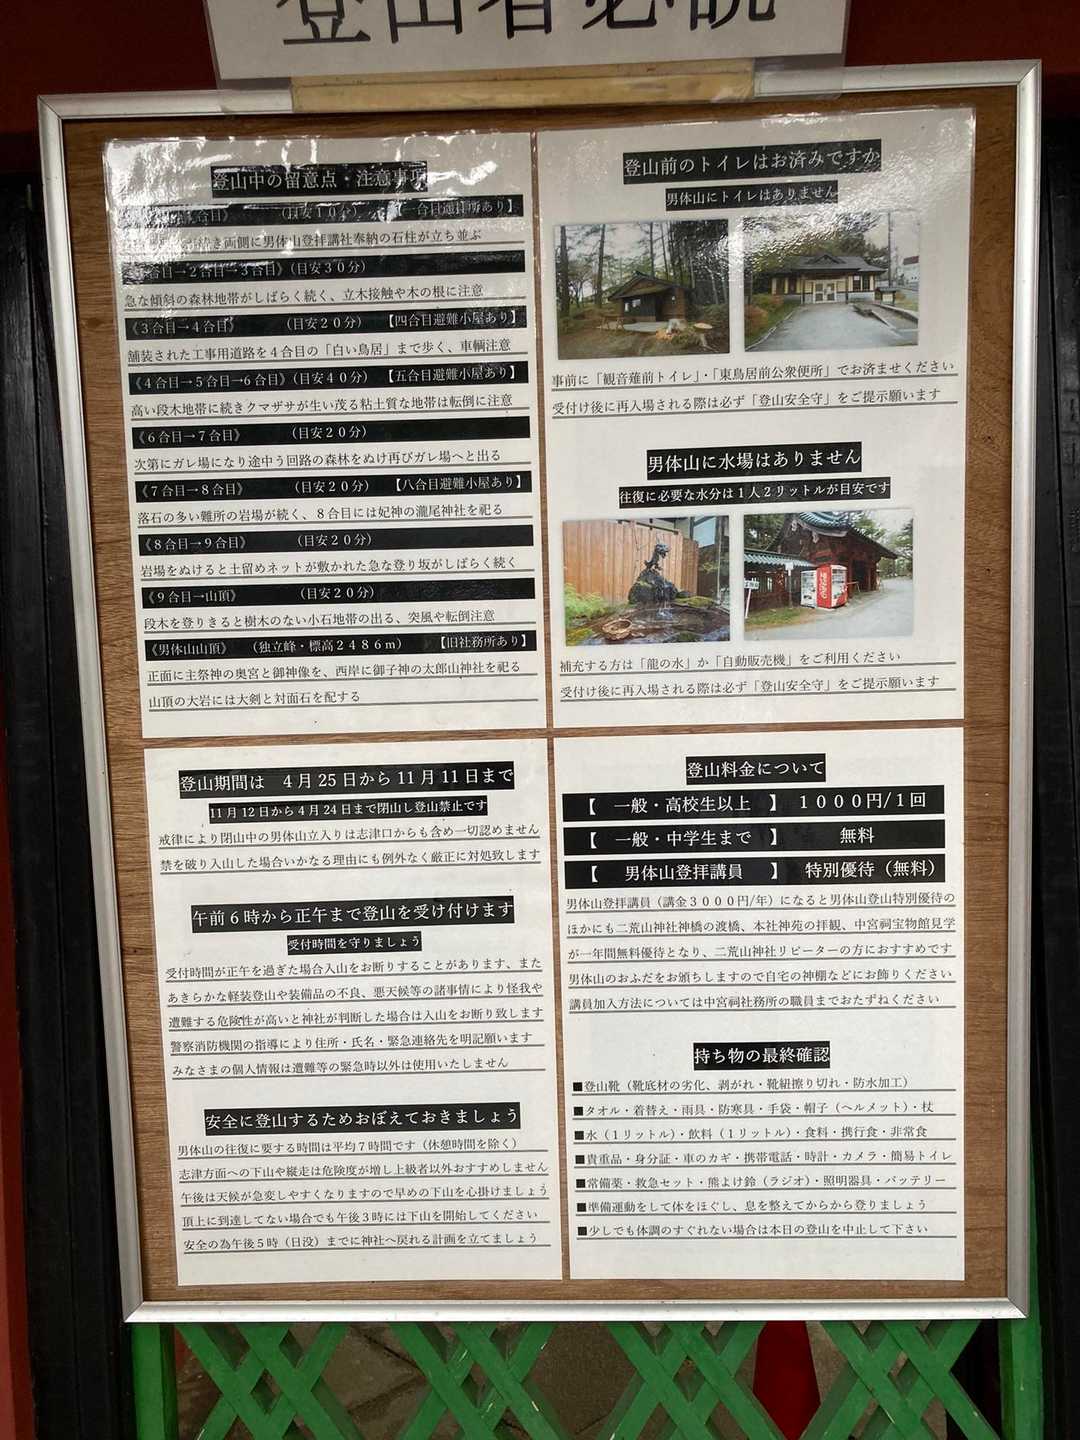 登山者必読
登山中の留意点・注意事項
合目》 (目安10分) 【一合目遥拝所あり】
き両側に男体山登拝講社奉納の石柱が立ち並ぶ
合目→2合目→3合目》(目安30分)
急な傾斜の森林地帯がしばらく続く、立木接触や木の根に注意
《3合目→4合目》 (目安20分) 【四合目避難小屋あり】
舗装された工事用道路を4合目の「白い鳥居」まで歩く、車輌注意
《4合目→5合目→6合目》(目安40分) 【五合目避難小屋あり】
高い段木地帯に続きクマザサが生い茂る粘土質な地帯は転倒に注意
《6合目→7合目》 (目安20分)
次第にガレ場になり途中う回路の森林をぬけ再びガレ場へと出る
《7合目→8合目》 (目安20分) 【八合目避難小屋あり】
落石の多い難所の岩場が続く、8合目には妃神の瀧尾神社を祀る
《8合目→9合目》 (目安20分)
岩場をぬけると土留めネットが敷かれた急な登り坂がしばらく続く
《9合目→山頂》 (目安20分)
段木を登りきると樹木のない小石地帯の出る、突風や転倒注意
《男体山山頂》 (独立峰・標高2486m) 【旧社務所あり】
正面に主祭神の奥宮と御神像を、西岸に御子神の太郎山神社を祀る
山頂の大岩には大剣と対面石を配する
登山前のトイレはお済みですか
男体山にトイレはありません
事前に「観音薙前トイレ」・「東鳥居前公衆便所」でお済ませください
受付け後に再入場される際は必ず「登山安全守」をご提示願います
男体山に水場はありません
往復に必要な水分は1人2リットルが目安です
補充する方は「龍の水」か「自動販売機」をご利用ください
受付け後に再入場される際は必ず「登山安全守」をご提示願います
登山期間は 4月25日から11月11日まで
11月12日から4月24日まで閉山し登山禁止です
戒律により閉山中の男体山立入りは志津口からも含め一切認めません
禁を破り入山した場合いかなる理由にも例外なく厳正に対処致します
午前6時から正午まで登山を受け付けます
受付時間を守りましょう
受付時間が正午を過ぎた場合入山をお断りすることがあります、また
あきらかな軽装登山や装備品の不良、悪天候等の諸事情により怪我や
遭難する危険性が高いと神社が判断した場合は入山をお断り致します
警察消防機関の指導により住所・氏名・緊急連絡先を明記願います
みなさまの個人情報は遭難等の緊急時以外は使用いたしません
安全に登山するためおぼえておきましょう
男体山の往復に要する時間は平均7時間です(休憩時間を除く)
志津方面への下山や縦走は危険度が増し上級者以外おすすめしません
午後は天候が急変しやすくなりますので早めの下山を心掛けましょう
頂上に到達してない場合でも午後3時には下山を開始してください
安全の為午後5時(日没)までに神社へ戻れる計画を立てましょう
登山料金について
【 一般・高校生以上 】 1000円/1回
【 一般・中学生まで 】 無料
【 男体山登拝講員 】 特別優待(無料)
男体山登拝講員(講金3000円/年)になると男体山登山特別優待の
ほかにも二荒山神社神橋の渡橋、本社神苑の拝観、中宮祠宝物館見学
が一年間無料優待となり、二荒山神社リピーターの方におすすめです
男体山のおふだをお頒ちしますので自宅の神棚などにお飾りください
講員加入方法については中宮祠社務所の職員までおたずねください
持ち物の最終確認
■登山靴(靴底材の劣化、剥がれ・靴紐擦り切れ・防水加工)
■タオル・着替え・雨具・防寒具・手袋・帽子(ヘルメット)・杖
■水(1リットル)・飲料(1リットル)・食料・携行食・非常食
■貴重品・身分証・車のカギ・携帯電話・時計・カメラ・簡易トイレ
■常備薬・救急セット・熊よけ鈴(ラジオ)・照明器具・バッテリー
■準備運動をして体をほぐし、息を整えてからから登りましょう
■少しでも体調のすぐれない場合は本日の登山を中止して下さい